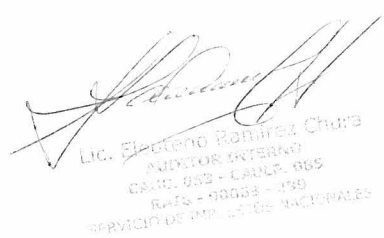 Lic. Eleuterio Ramirez Chura
AUDITOR INTERNO
CAUB. 053 - CAULP. 085
RAIG -
SERVICIO DE IMPUESTOS NACIONALES